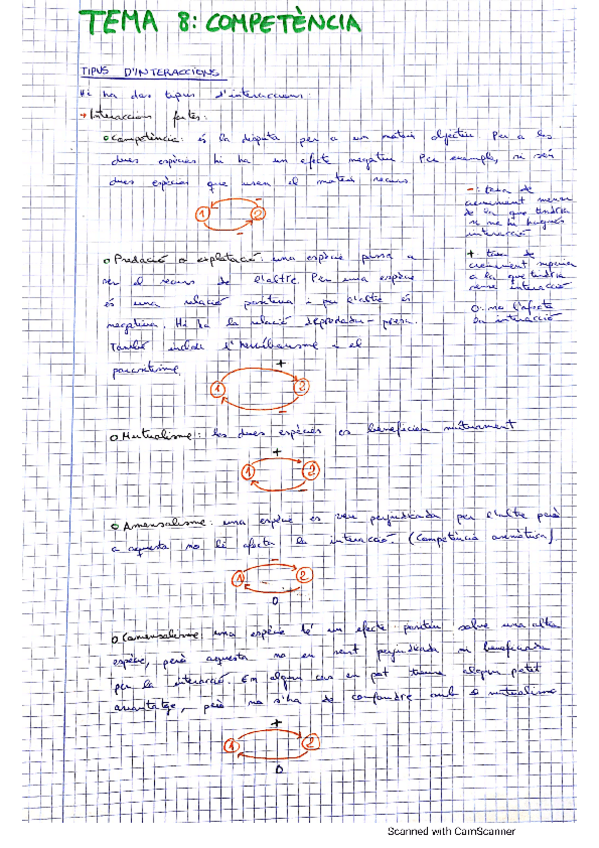 TEMA 8: COMPETÈNCIA
TIPUS D'INTERACCIONS
Hi ha dos tipus d'interaccions:
→ Interaccions fortes:
o Competència: és la disputa per a un mateix objectiu. Per a les
dues espècies hi ha un efecte negatiu. Per exemple, si són
dues espècies que usen el mateix recurs
-
1 2
-
- : taxa de
creixement menor
de la que tindria
si no hi hagués
interacció
+ taxa de
creixement superior
a la que tindria
sense interacció
0: no l'afecta
la interacció
o Predació o explotació una espècie passa a
ser el recurs de l'altre. Per una espècie
és una relació positiva i per l'altre és
negativa. Hi ha la relació depredador-presa.
També inclou l'herbivorisme i el
parasitisme.
+
1 2
-
o Mutualisme: les dues espècies es beneficien mútuament
+
1 2
o Amensalisme: una espècie es veu perjudicada per l'altre però
a aquesta no li afecta la interacció. (Competència asimètrica)
-
1 2
0
o Comensalisme una espècie té un efecte positiu sobre una altra
espècie, però aquesta no es veu perjudicada ni beneficiada
per la interacció. En algun cas en pot treure algun petit
avantatge, però no s'ha de confondre amb el mutualisme
+
1 2
0
Scanned with CamScanner